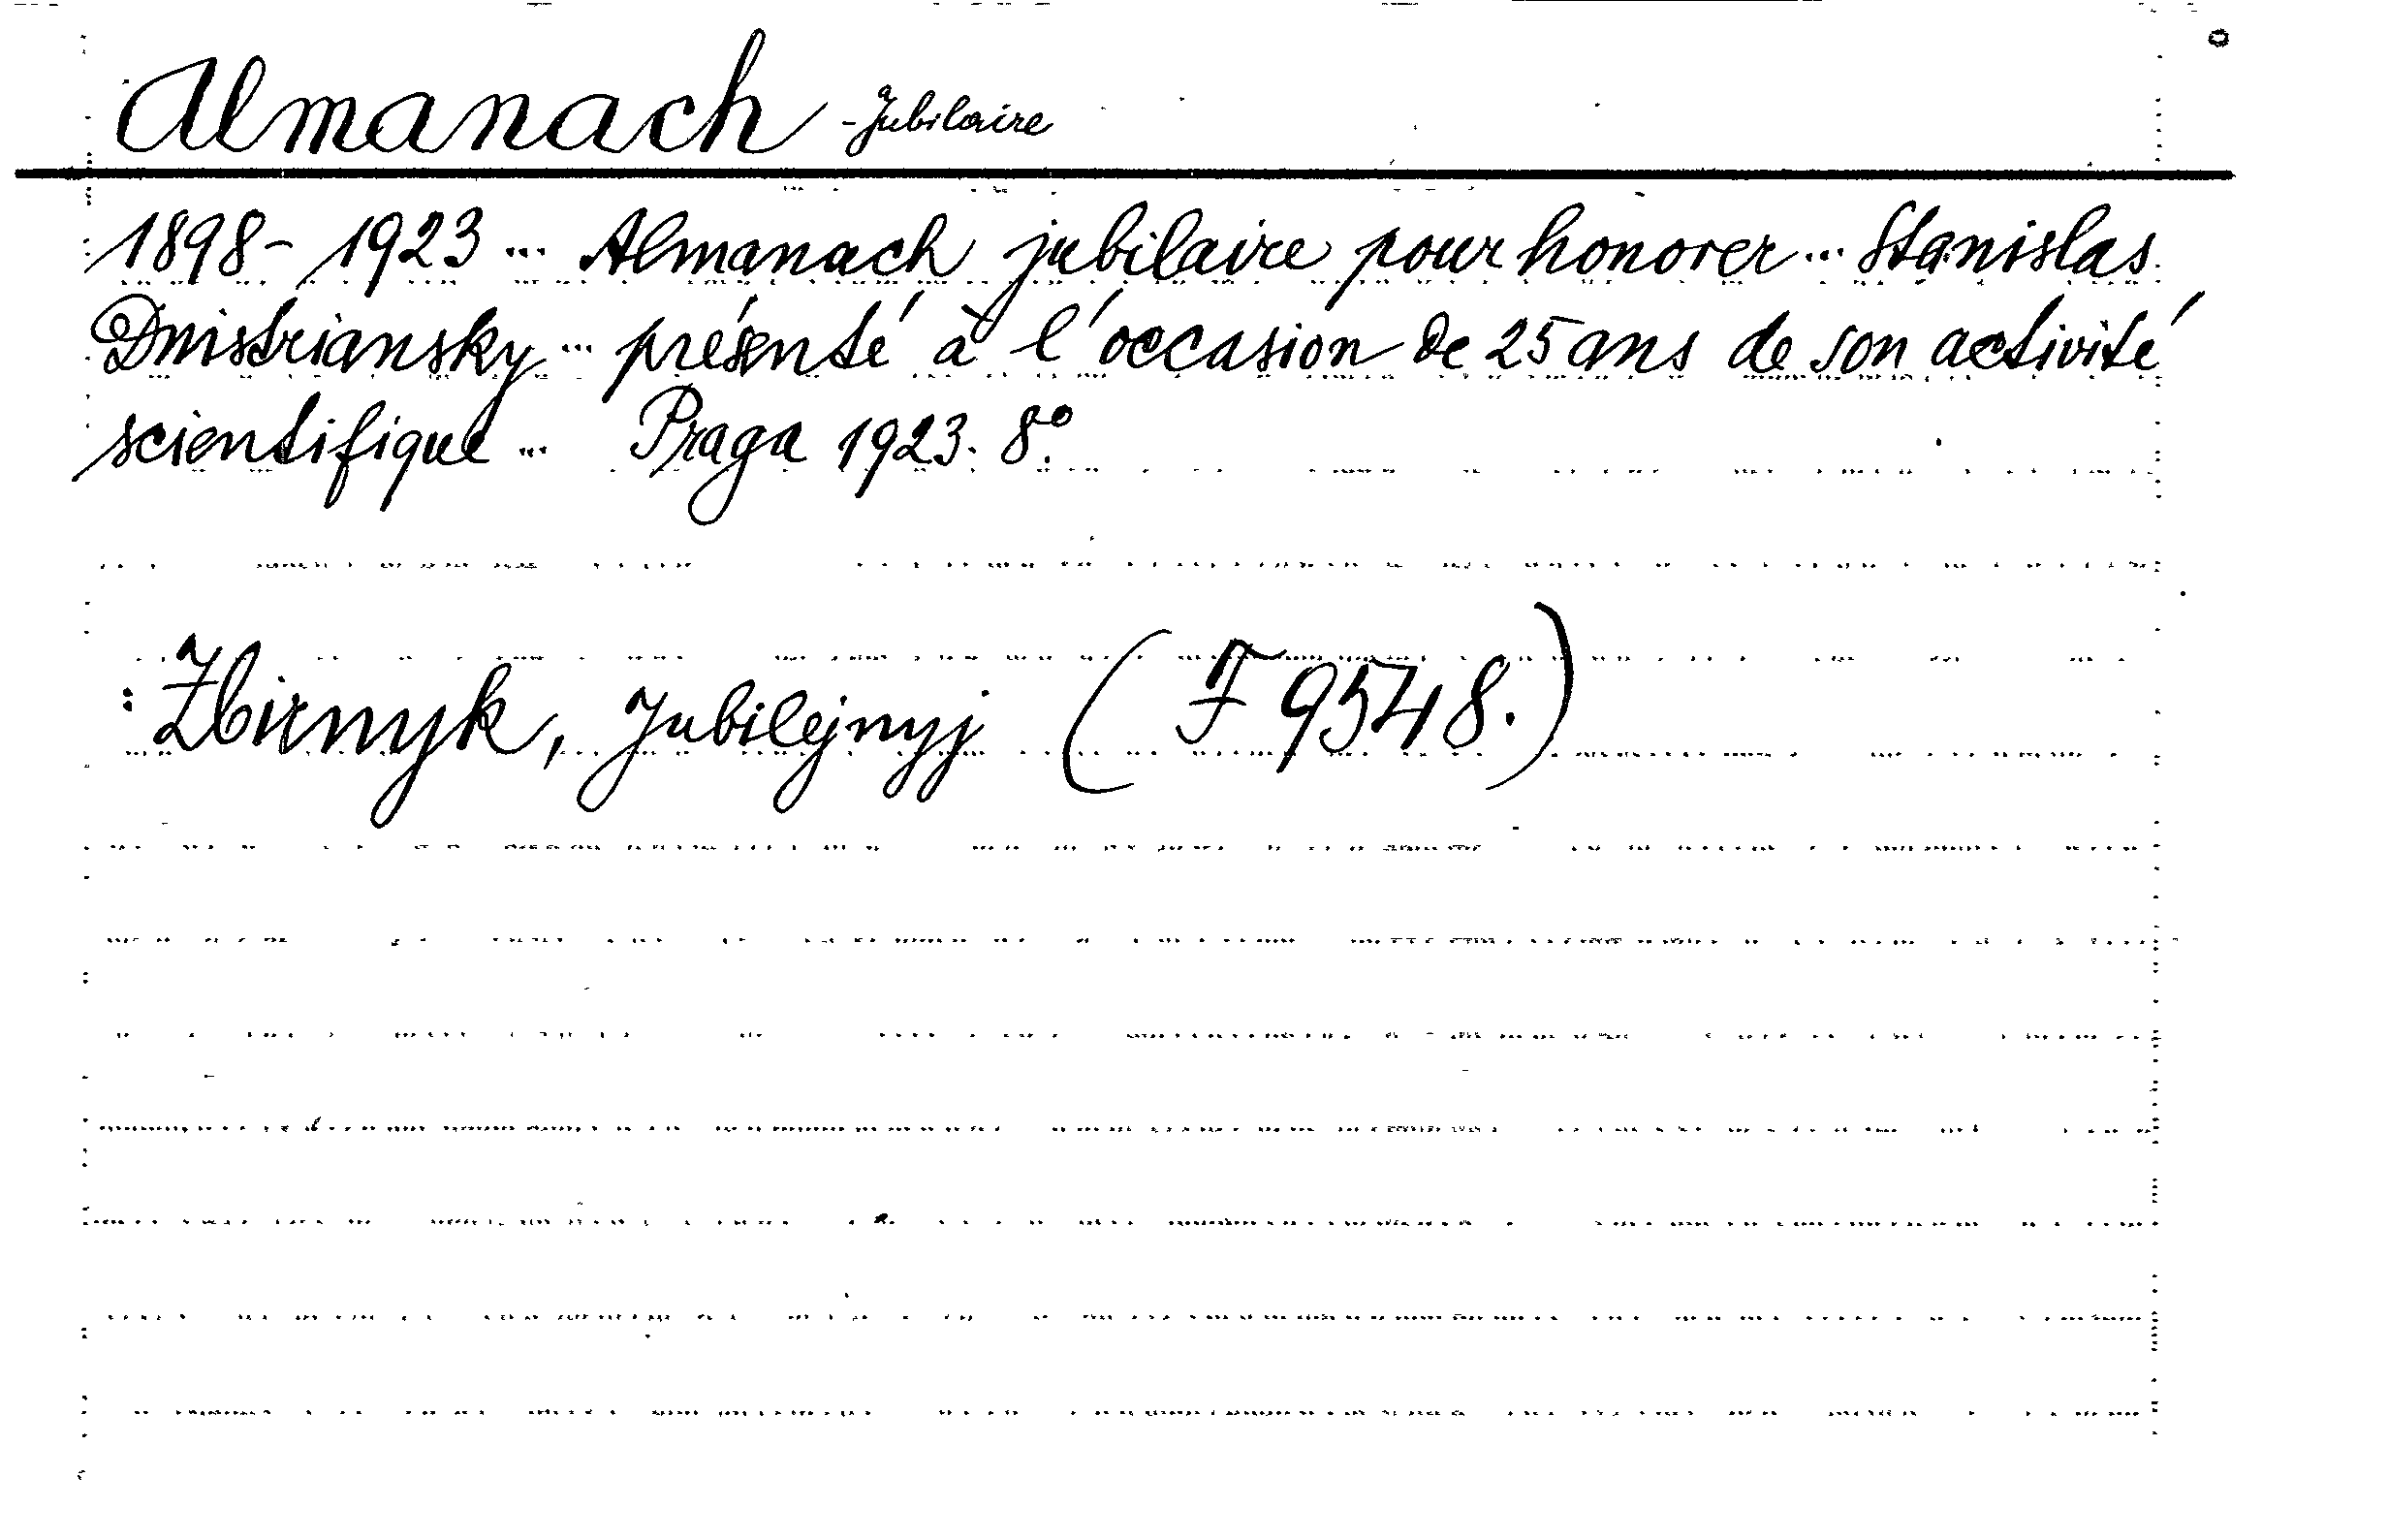 Almanach -Jubilaire
1898-1923 ... Almanach jubilaire pour honorer ... Stanislas
Dnistriansky ... présenté à l'occasion de 25 ans de son activité
scientifique ... Praga 1923. 8º.
: Zbirnyk, Jubilejnyj (F 9548.)